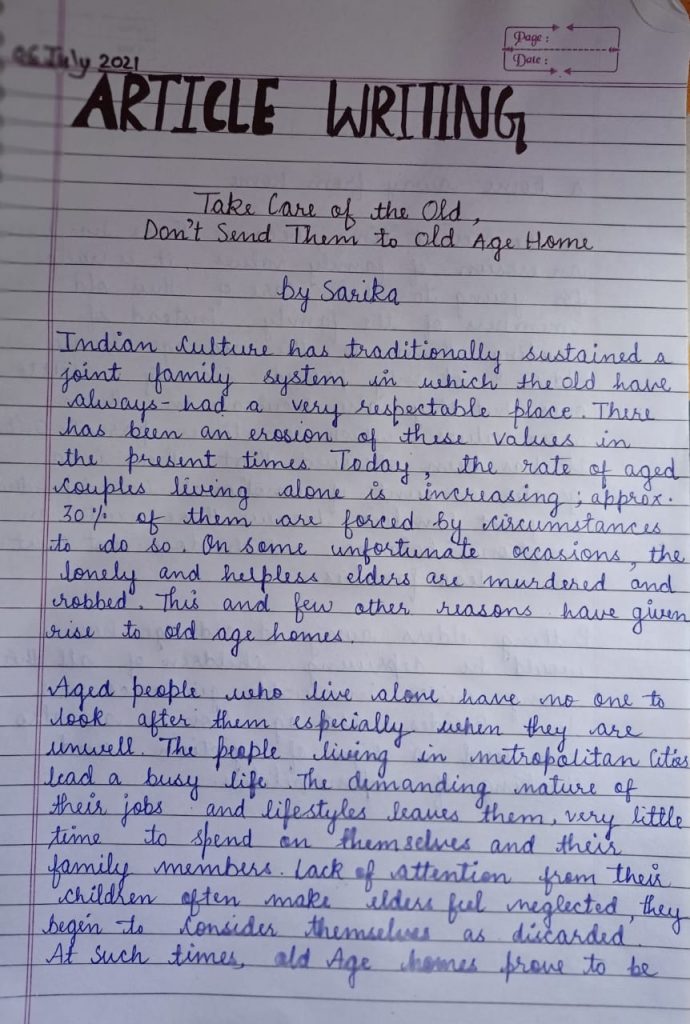 06 July 2021
Page :
Date :
ARTICLE WRITING
Take Care of the Old,
Don't Send Them to Old Age Home
by Sarika
Indian culture has traditionally sustained a
joint family system in which the old have
always- had a very respectable place. There
has been an erosion of these values in
the present times Today, the rate of aged
couples living alone is increasing; approx.
30% of them are forced by circumstances
to do so. On some unfortunate occasions, the
lonely and helpless elders are murdered and
robbed. This and few other reasons have given
rise to old age homes.
Aged people who live alone have no one to
look after them especially when they are
unwell. The people living in metropolitan Cities
lead a busy life. The demanding nature of
their jobs and lifestyles leaves them, very little
time to spend on themselves and their
family members. Lack of attention from their
children often make elders feel neglected, they
begin to consider themselves as discarded.
At such times, old Age homes prove to be